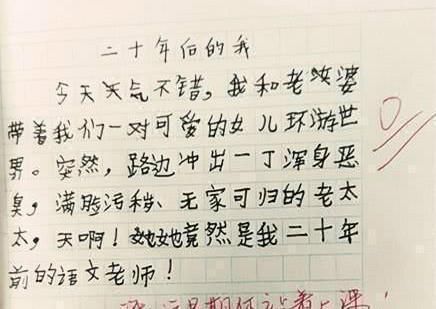 二十年后的我
今天天气不错，我和老婆
带着我们一对可爱的女儿环游世
界。突然，路边冲出一丁浑身恶
臭，满脸污秽、无家可归的老太
太，天啊！她她竟然是我二十年
前的语文老师！